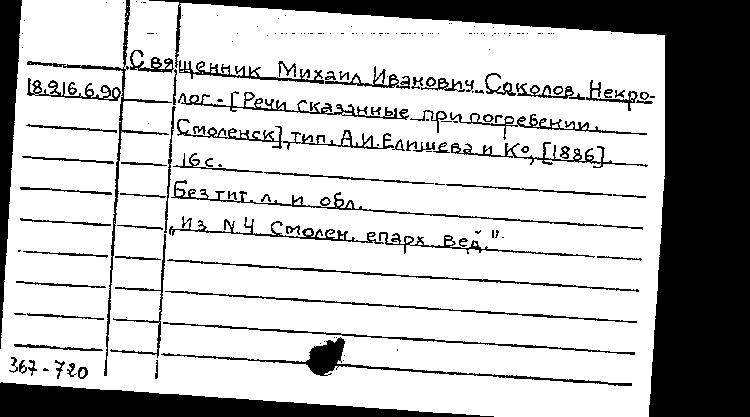 Священник Михаил Иванович Соколов. Некро-
18.216.6.90 лог. - [Речи сказанные при погребении.
Смоленск], тип. А.И.Елишева и К°, [1886].
16 с.
Без тит. л. и обл.
„Из N 4 Смолен. епарх вед."
367-720